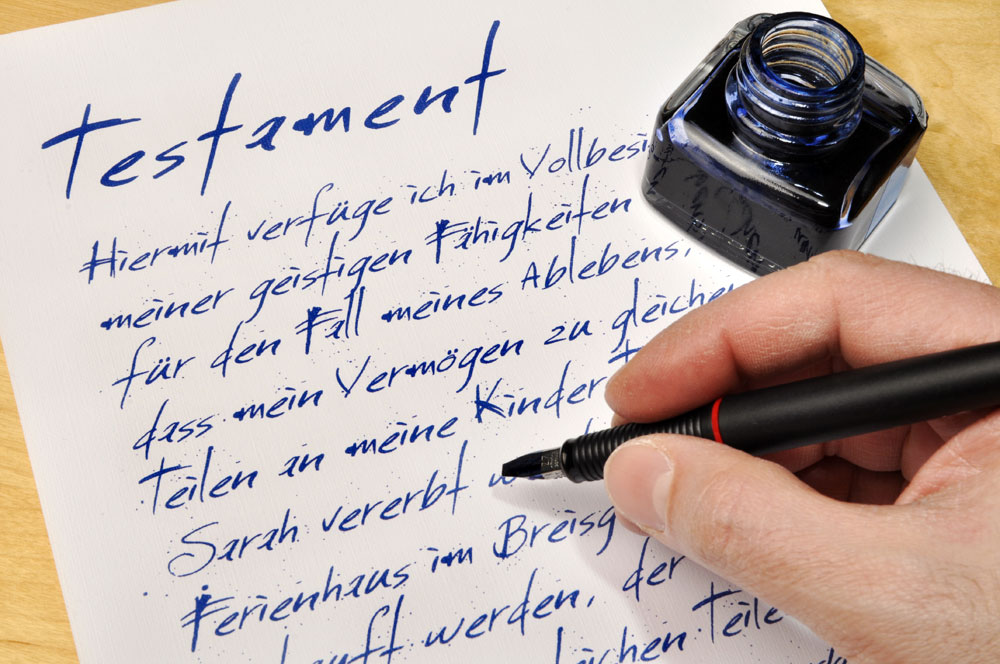 Testament
Hiermit verfüge ich im
meiner geistigen Fähigkeiten
für den Fall meines Ablebens,
dass mein Vermögen zu gleichen
Teilen an meine Kinder
Sarah vererbt
Ferienhaus im
werden, der